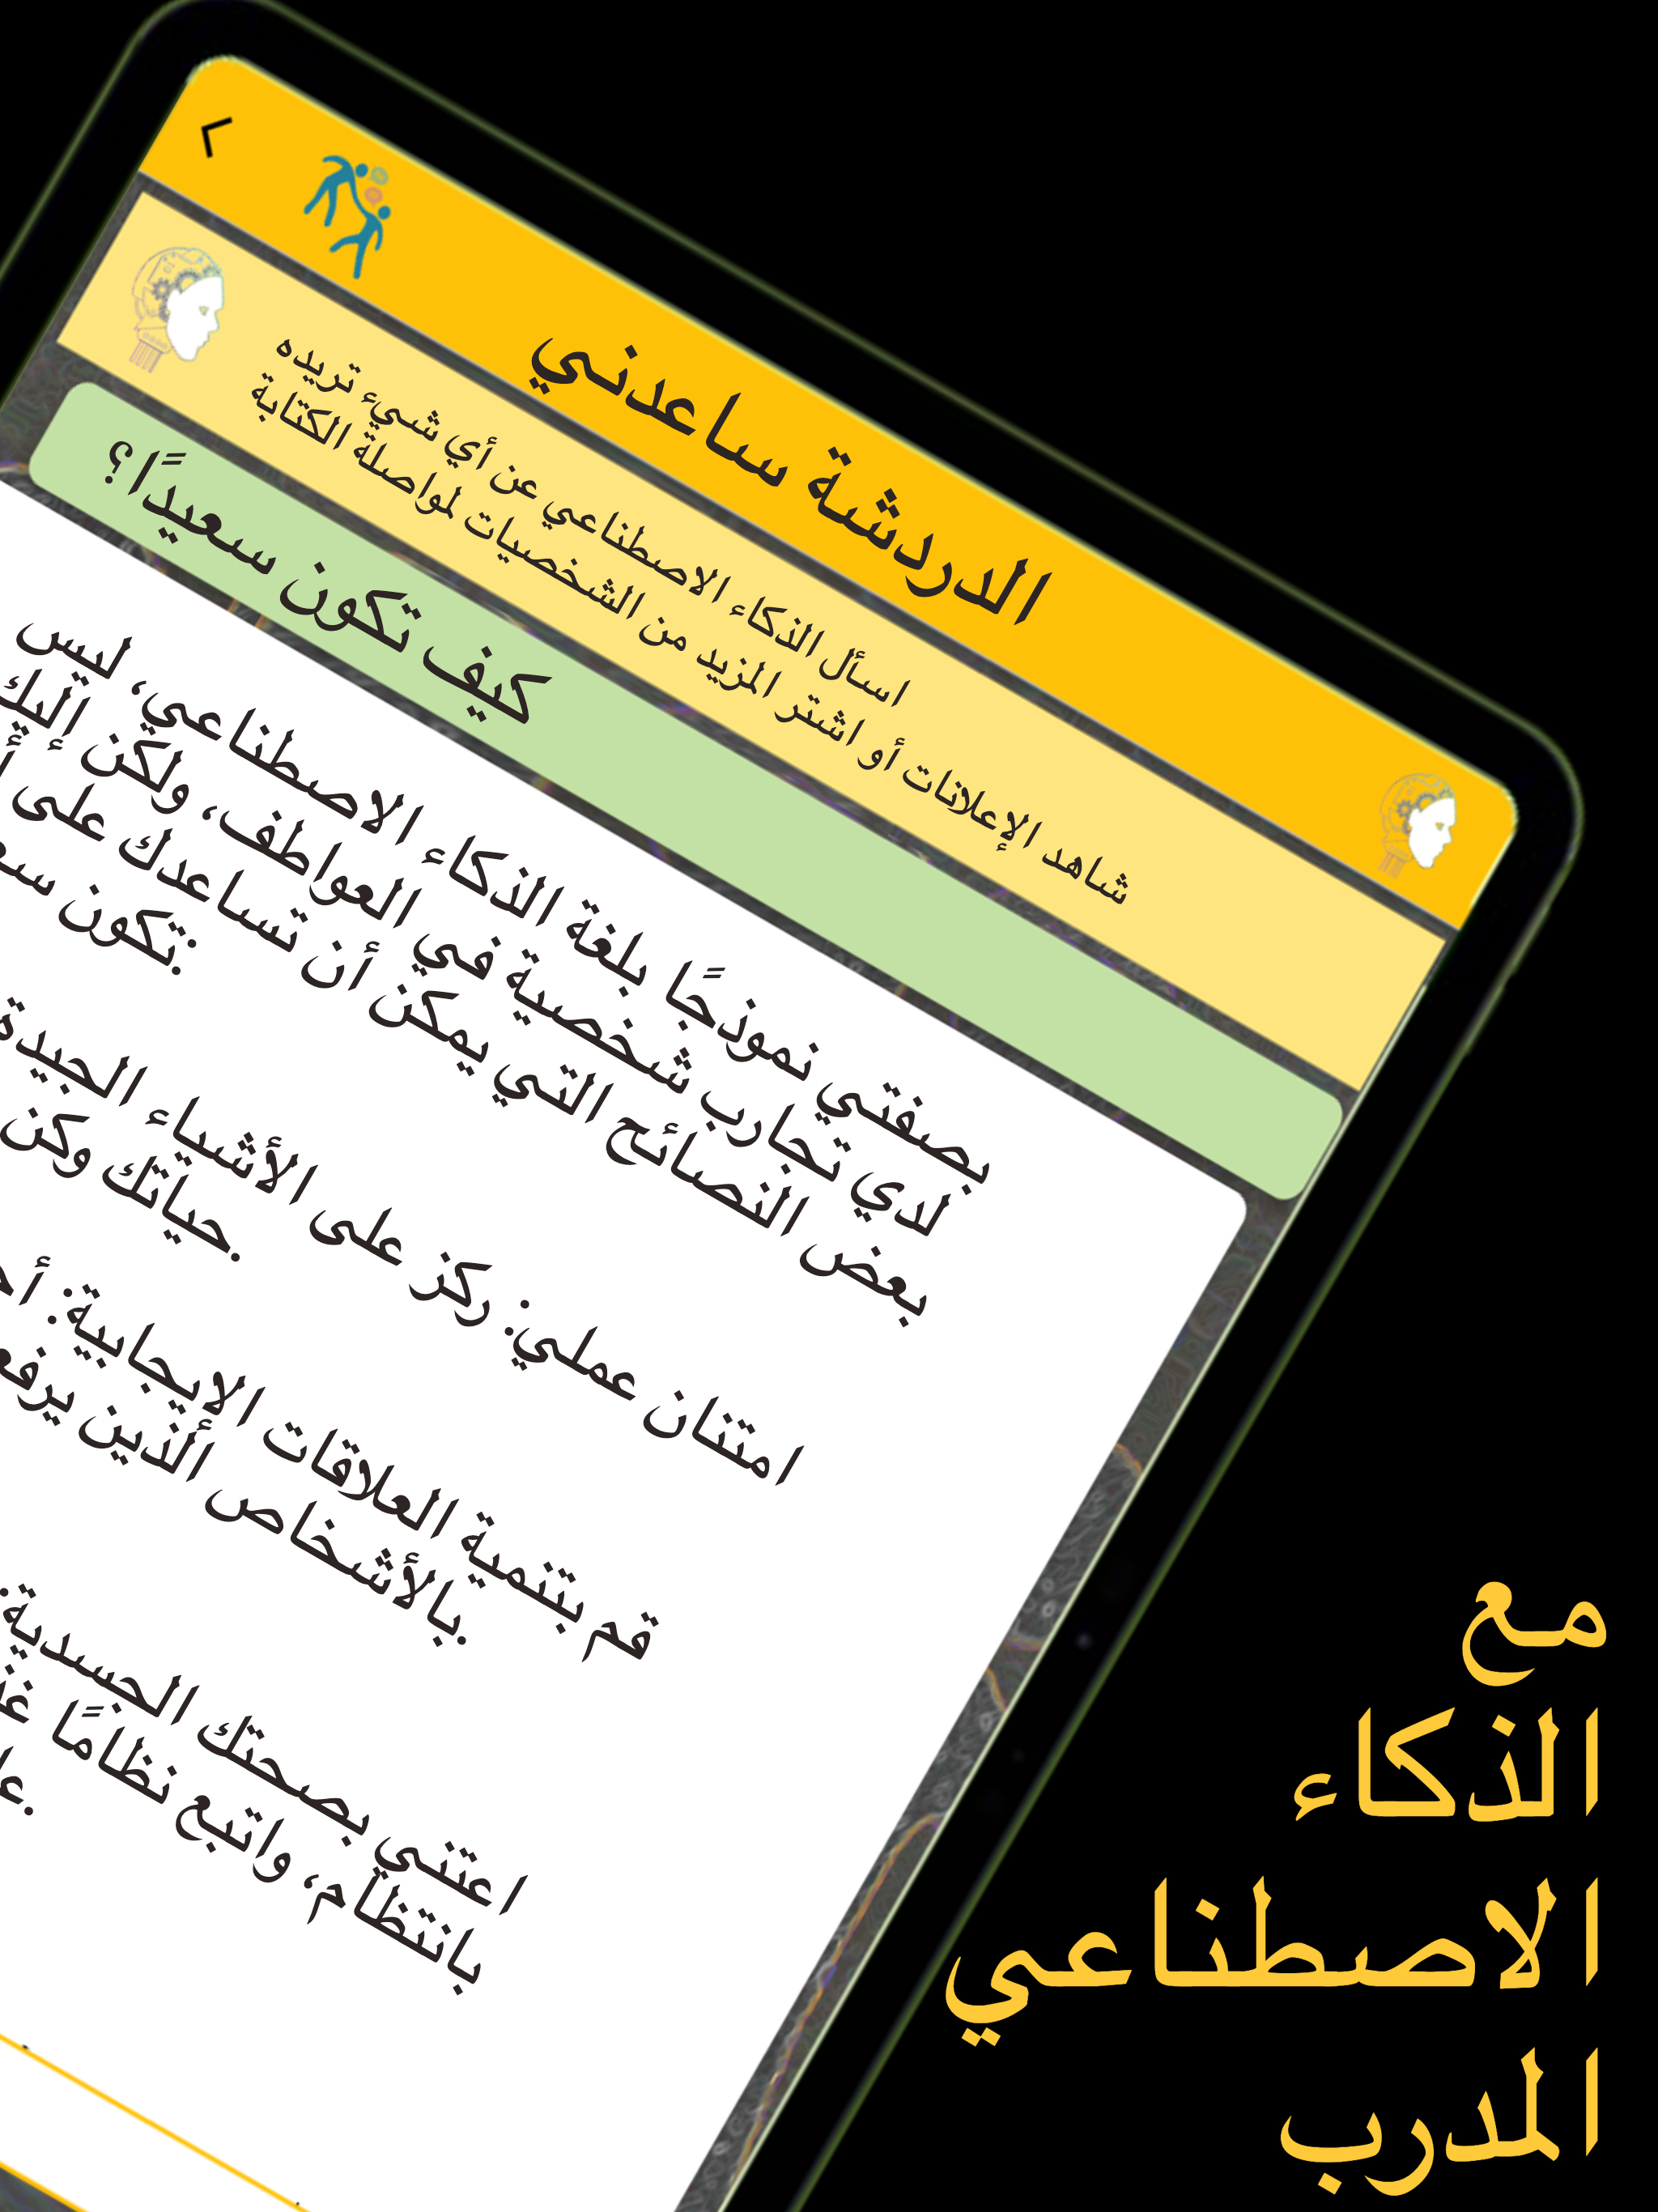 الدردشة ساعدني
اسأل الذكاء الاصطناعي عن أي شيء تريده
شاهد الإعلانات أو اشتر المزيد من الشخصيات لمواصلة الكتابة
كيف تكون سعيدًا؟
بصفتي نموذجًا بلغة الذكاء الاصطناعي، ليس
لدي تجارب شخصية في العواطف، ولكن إليك
بعض النصائح التي يمكن أن تساعدك على
تكون:
امتنان عملي: ركز على الأشياء الجيدة
حياتك وكن.
قم بتنمية العلاقات الإيجابية:
بالأشخاص الذين.
اعتني بصحتك الجسدية:
بانتظام، واتبع نظامًا
مع
الذكاء
الاصطناعي
المدرب